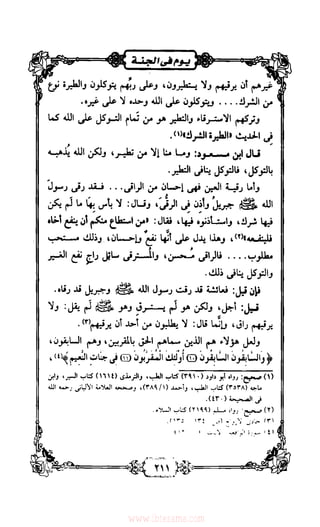 يوم في الجنة
غيرهم أن يرقيهم ولا يتطيرون، وعلى ربهم يتوكلون والطيرة نوع
من الشرك.... ويتوكلون على الله وحده لا على غيره.
وتركهم الاسترقاء والتطير هو من تمام التوكل على الله كما
في الحديث «الطيرة الشرك»(١).
قال ابن مسعود: وما منا إلا من تطير، ولكن الله يُذهبه
بالتوكل، فالتوكل ينافي التطير.
وأما رقية العين فهي إحسان من الراقي... فقد رقى رسول
الله ﷺ جبريلُ وأذن في الرقى، وقال: «لا بأس بها ما لم يكن
فيها شرك، واستأذنوه فيها، فقال: «من استطاع منكم أن ينفع أخاه
فلينفعه»(٢)، وهذا يدل على أنها نفع وإحسان، وذلك مستحب
مطلوب.... فالراقي مُحسن، والمسترقي سائل راج نفع الغير
والتوكل ينافي ذلك.
فإن قيل: فعائشة قد رقت رسول الله ﷺ وجبريل قد رقاه.
قيل: أجل، ولكن هو لم يسترق وهو ﷺ لم يقل: ولا
يرقيهم راق، وإنما قال: لا يطلبون من أحد أن يرقيهم(٣).
ولعل هؤلاء هم الذين سماهم الحق بالمقربين، وهم السابقون،
﴿وَالسَّابِقُونَ السَّابِقُونَ ۝ أُولَٰئِكَ الْمُقَرَّبُونَ ۝ فِي جَنَّاتِ النَّعِيمِ﴾(٤)،
(١) صحيح: رواه أبو داود (٣٩١٠) كتاب الطب، والترمذي (١٦١٤) كتاب السير، وابن
ماجه (٣٥٣٨) كتاب الطب، وأحمد (٣٨٩/١)، وصححه العلامة الألباني رحمه الله
في الصحيحة (٤٣٠).
(٢) صحيح: رواه مسلم (٢١٩٩) كتاب السلام.
(٣) حادي
(٤) سورة الواقعة
٢١١